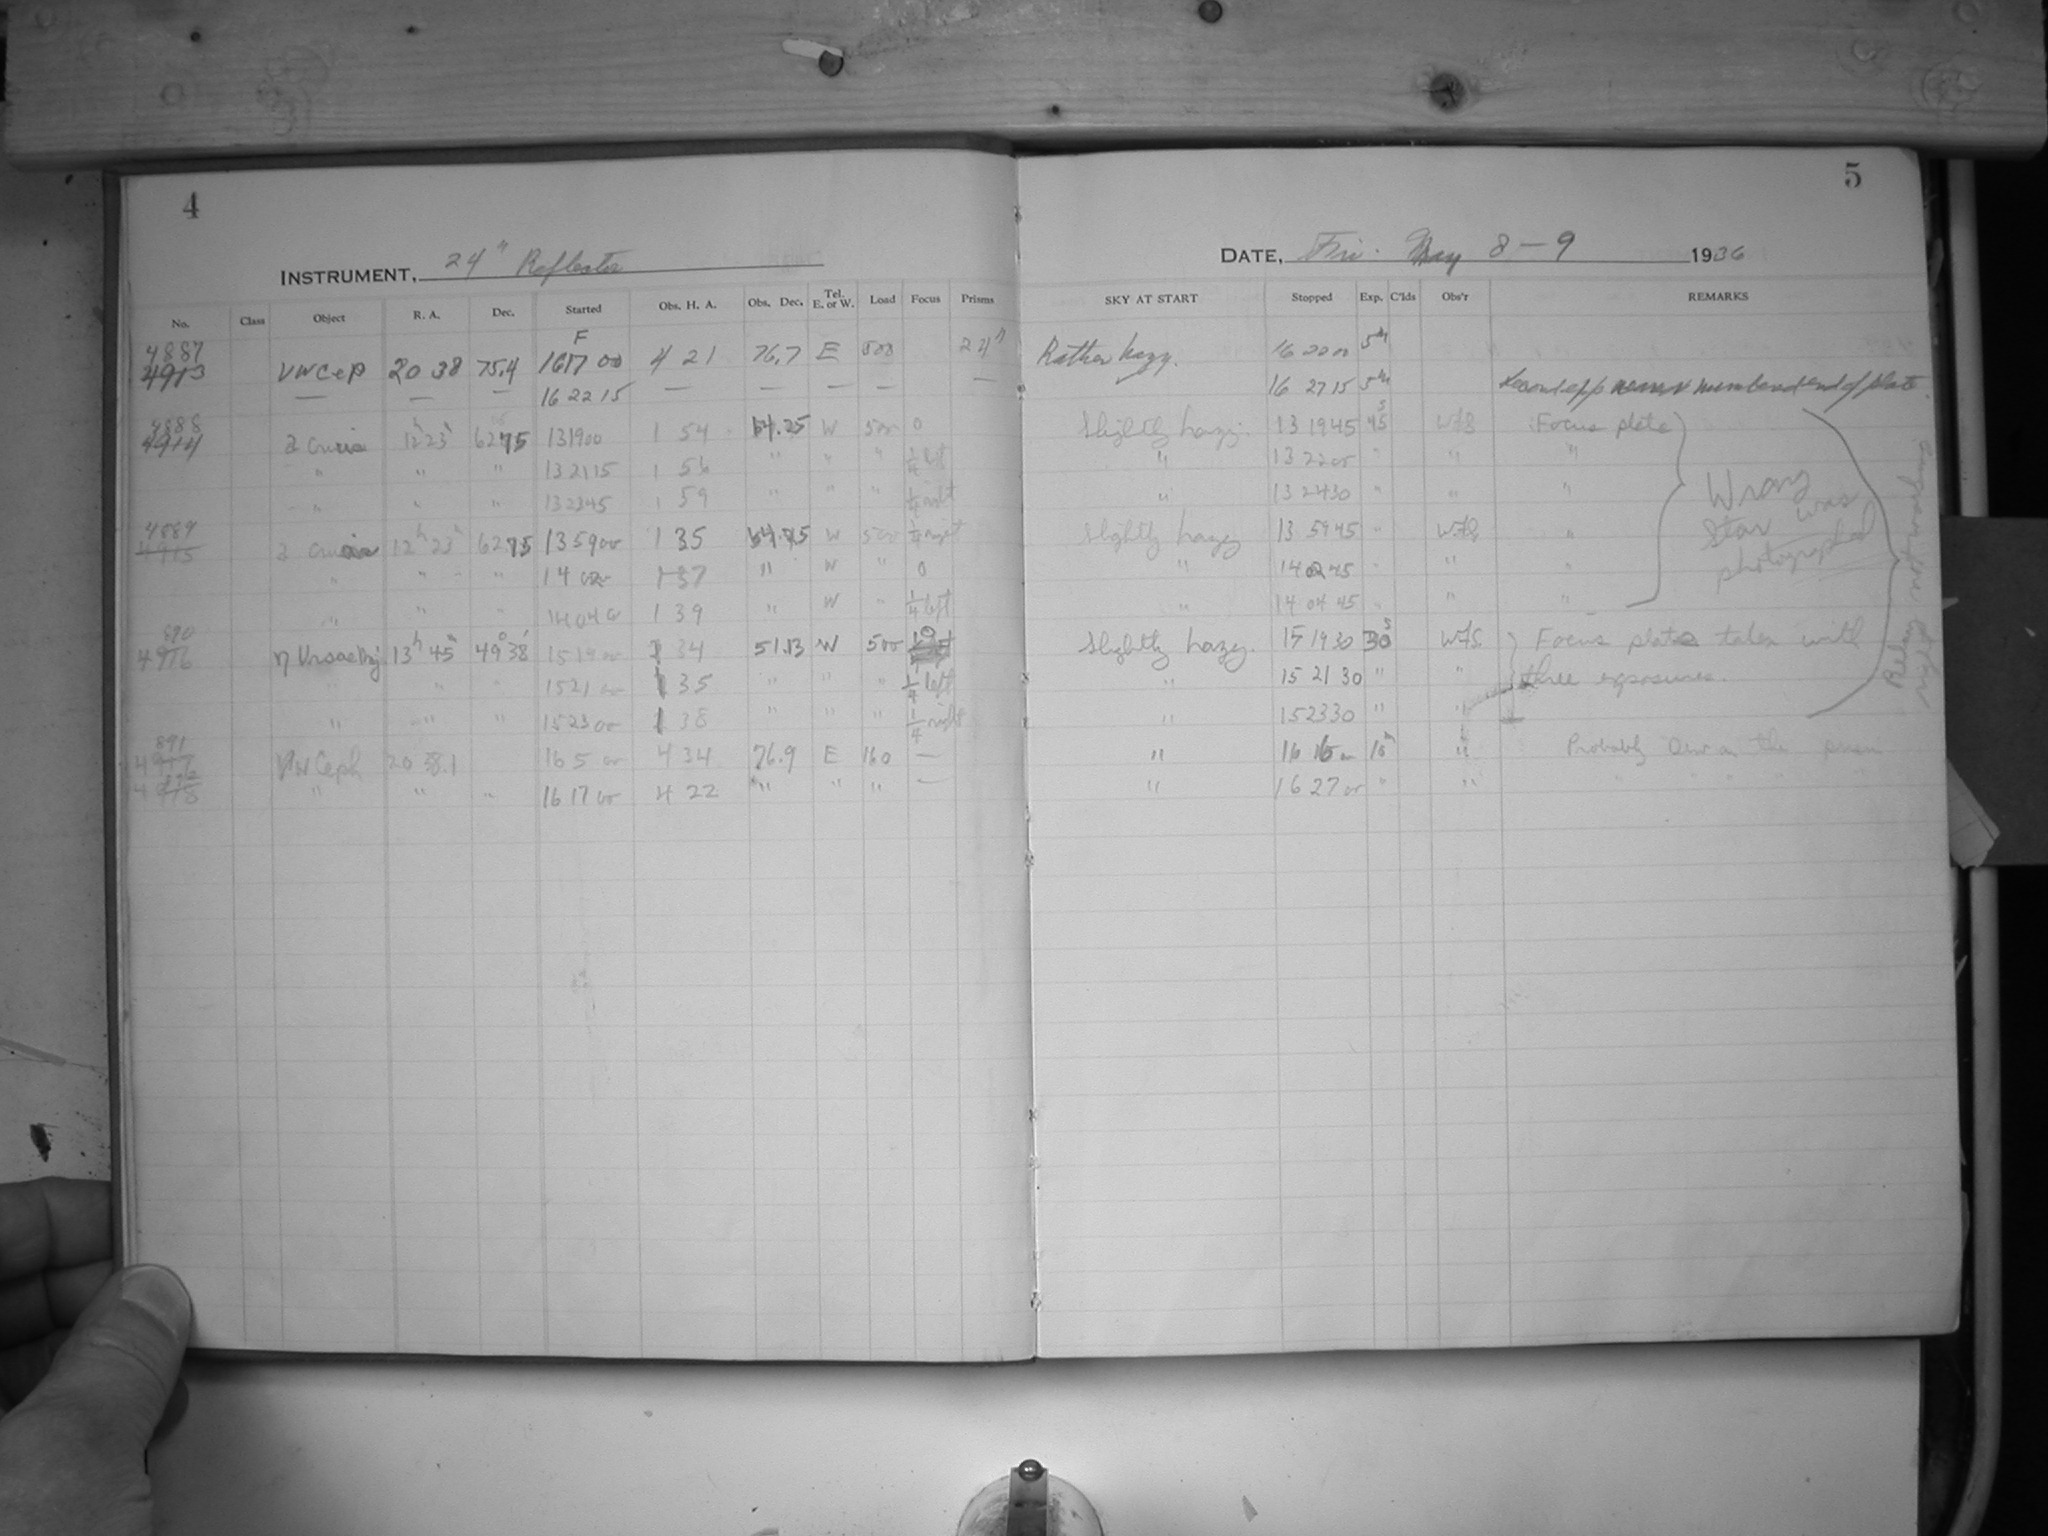 4
5
INSTRUMENT, 24" Reflector
DATE, Fri. May 8 — 9 1936
No. Class Object R. A. Dec. Started Obs. H. A. Obs. Dec. Tel. E. or W. Load Focus Prisms SKY AT START Stopped Exp. C'lds Obs'r REMARKS
F
4887
4913 VW Cep 20 38 75.4 16 17 00 4 21 76.7 E 500 24" Rather hazy. 16 22 00 5m
— — — 16 22 15 — — — — — 16 27 15 5m Second exp nearer numbered end of plate
4888
4914 12h 23m 62 75 13 19 00 1 54 64.25 W 500 0 Slightly hazy. 13 19 45 45s WFS Focus plate
" " " 13 21 15 1 56 " " " 1/4 left " 13 22 00 " " "
" " " 13 23 45 1 59 " " " 1/4 right " 13 24 30 " " "
Wrong star was photographed
4889
4915 12h 23m 62 75 13 59 00 1 35 W 500 1/4 right Slightly hazy 13 59 45 " WFS "
" " " 14 02 1 37 " W " 0 " 14 02 45 " " "
" " " 14 04 00 1 39 " W " 1/4 left " 14 04 45 " " "
890
4916 η Ursae Mj 13h 45m 49° 38' 15 19 00 1 34 51.13 W 500 0 Slightly hazy. 15 19 30 30s WFS Focus plate taken with
" " " 15 21 00 1 35 " " " 1/4 left " 15 21 30 " " three exposures.
" " " 15 23 00 1 38 " " " 1/4 right " 15 23 30 " "
891
4917 VW Ceph 20 38.1 16 5 00 4 34 76.9 E 160 — " 16 15 00 10m " Probably dew on the prism
" " " 16 17 00 4 22 " " " — " 16 27 00 " "